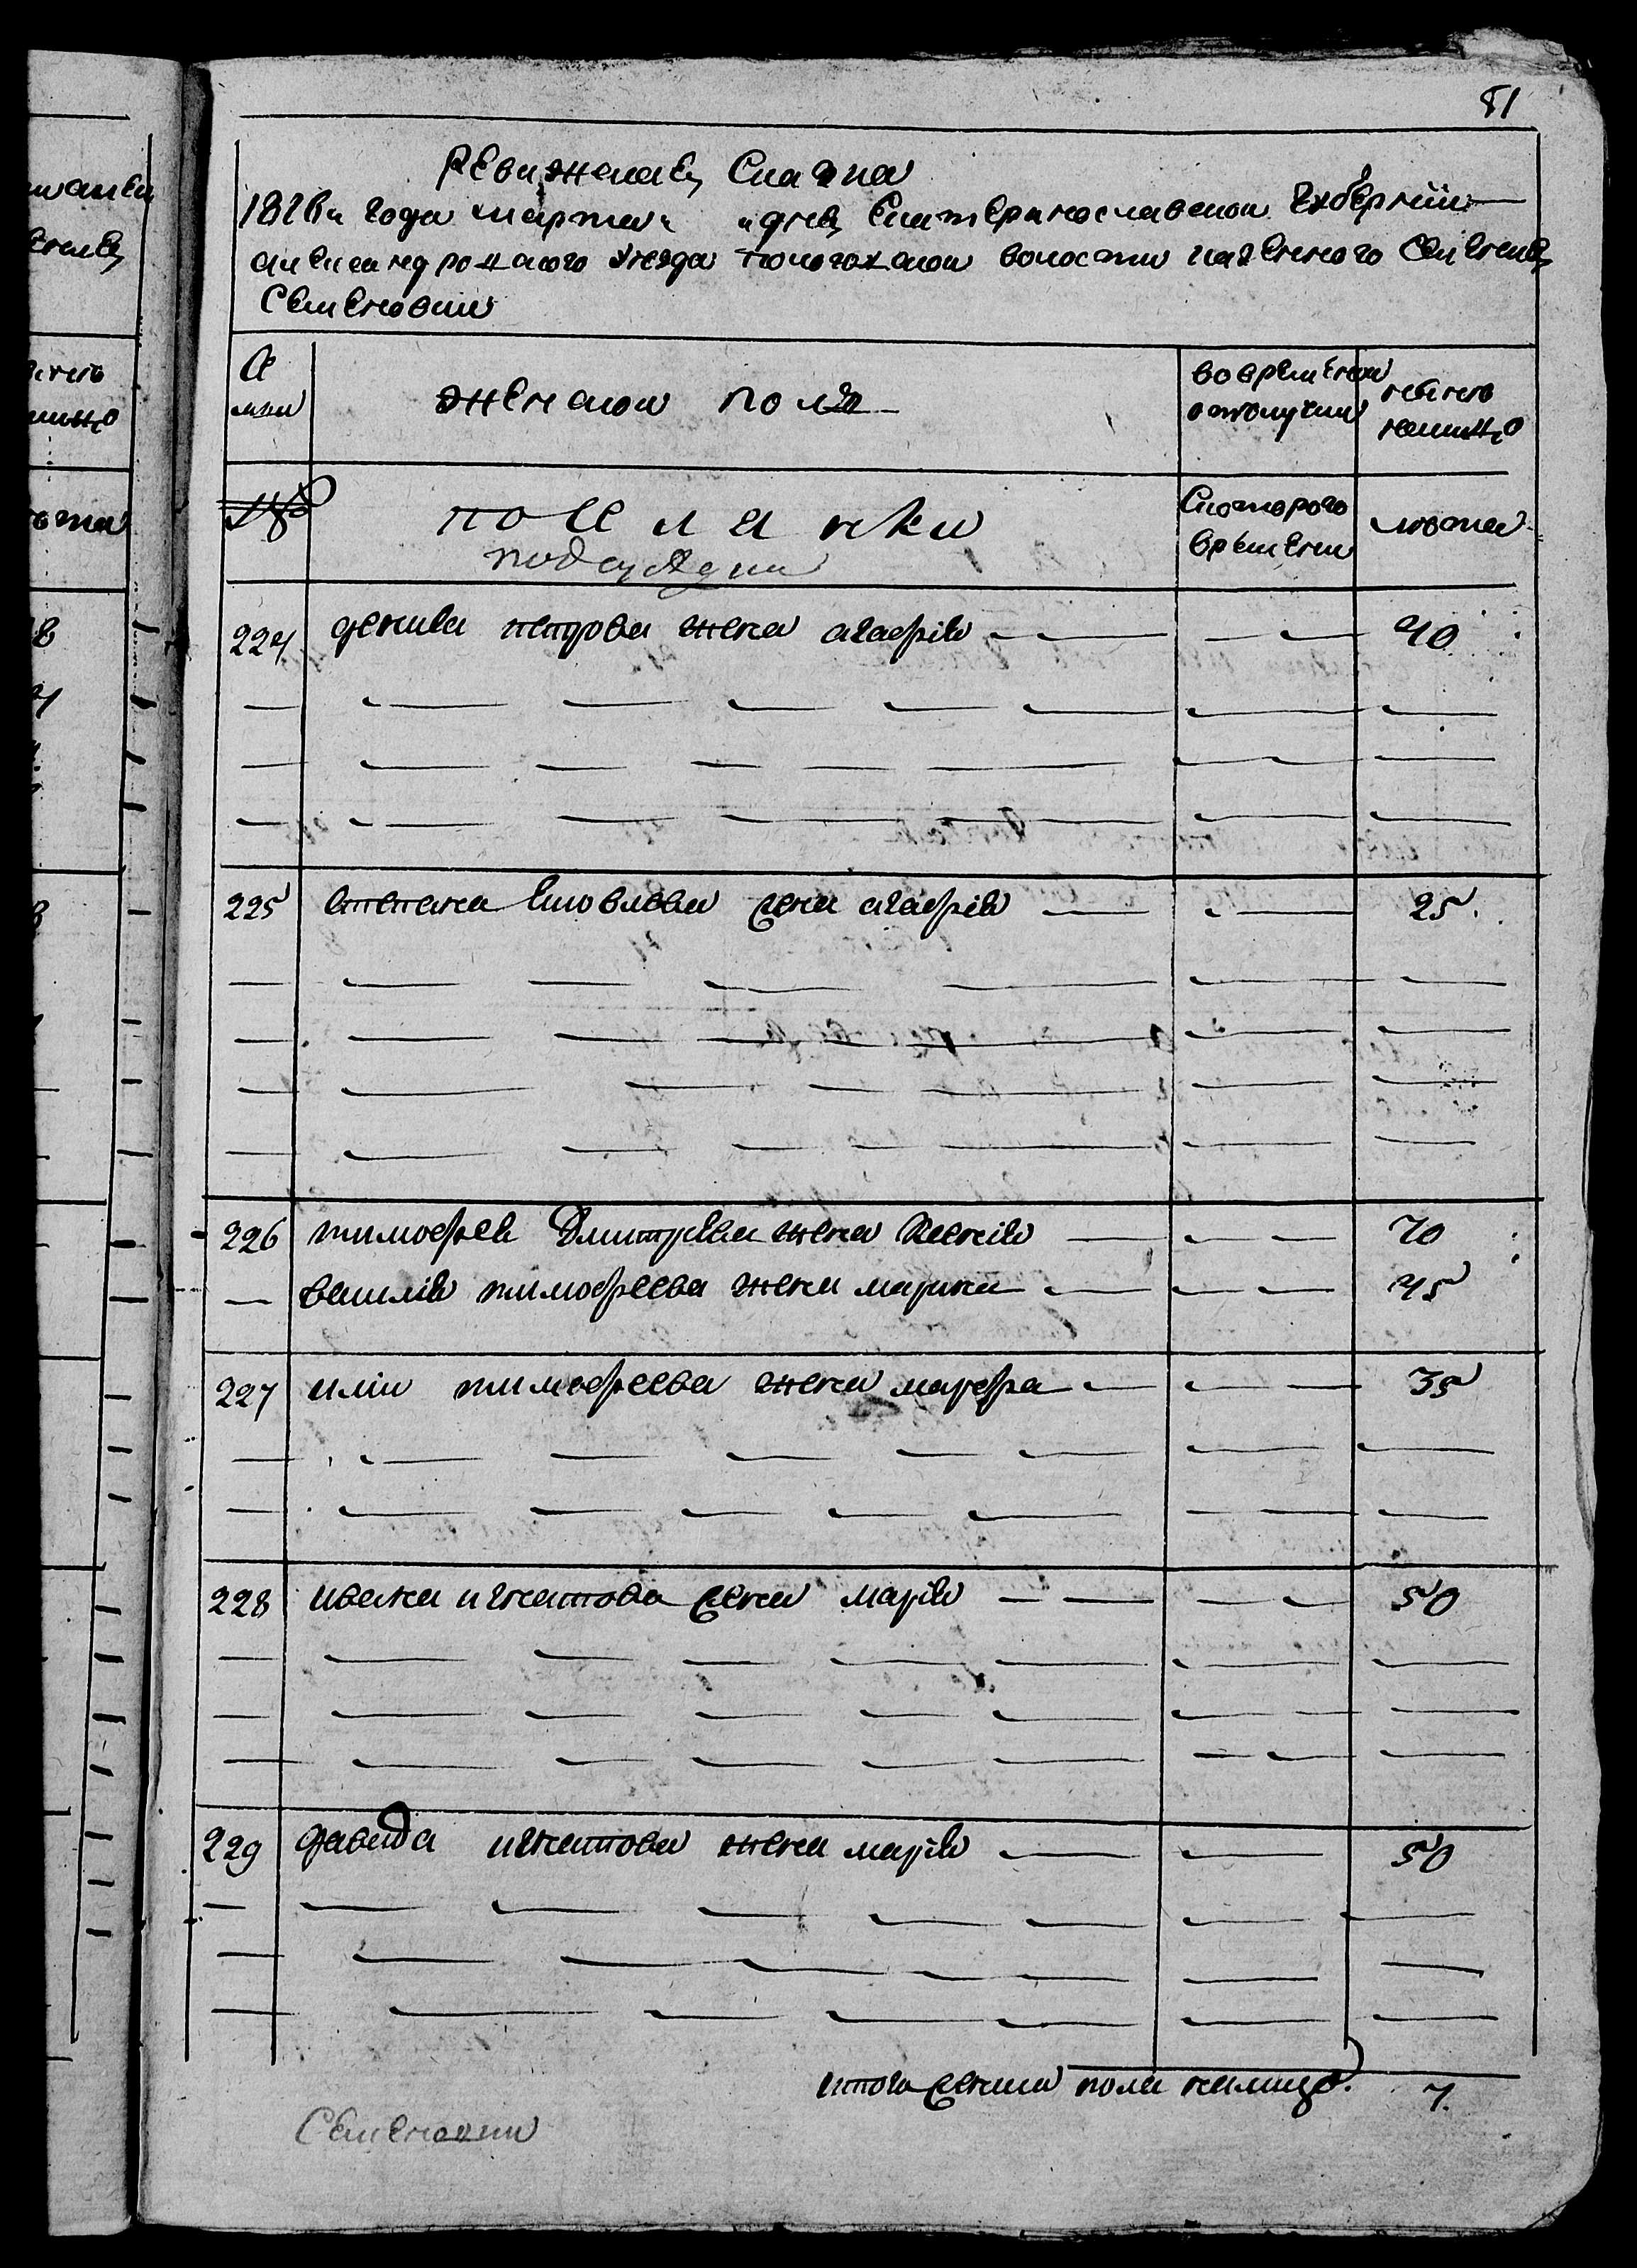 81
Ревижская Сказка
1816 года марта дня Екатеринославской губернии
александровского уезда токмоцкой волости казенного селения
Семеновки
Семьи
женской пол
во временной отлучки
ныне налицо
№
поселянки
подсуседки
С которого времени
лета
224 денила петрова жена агафия 40
225 степана яковлева жена агафия 25
226 тимофея Дмитрева жена Ксения 70
василия тимофеева жена марина 45
227 илии тимофеева жена марфа 35
228 ивана игнатова жена мария 50
229 давида игнатова жена мария 50
итого женска пола налицо 7.
Семеновки